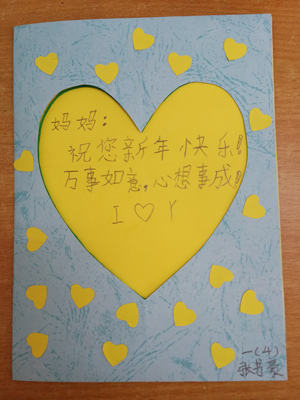 妈妈：
祝您新年快乐！
万事如意，心想事成！
I ♡ Y
一(4)